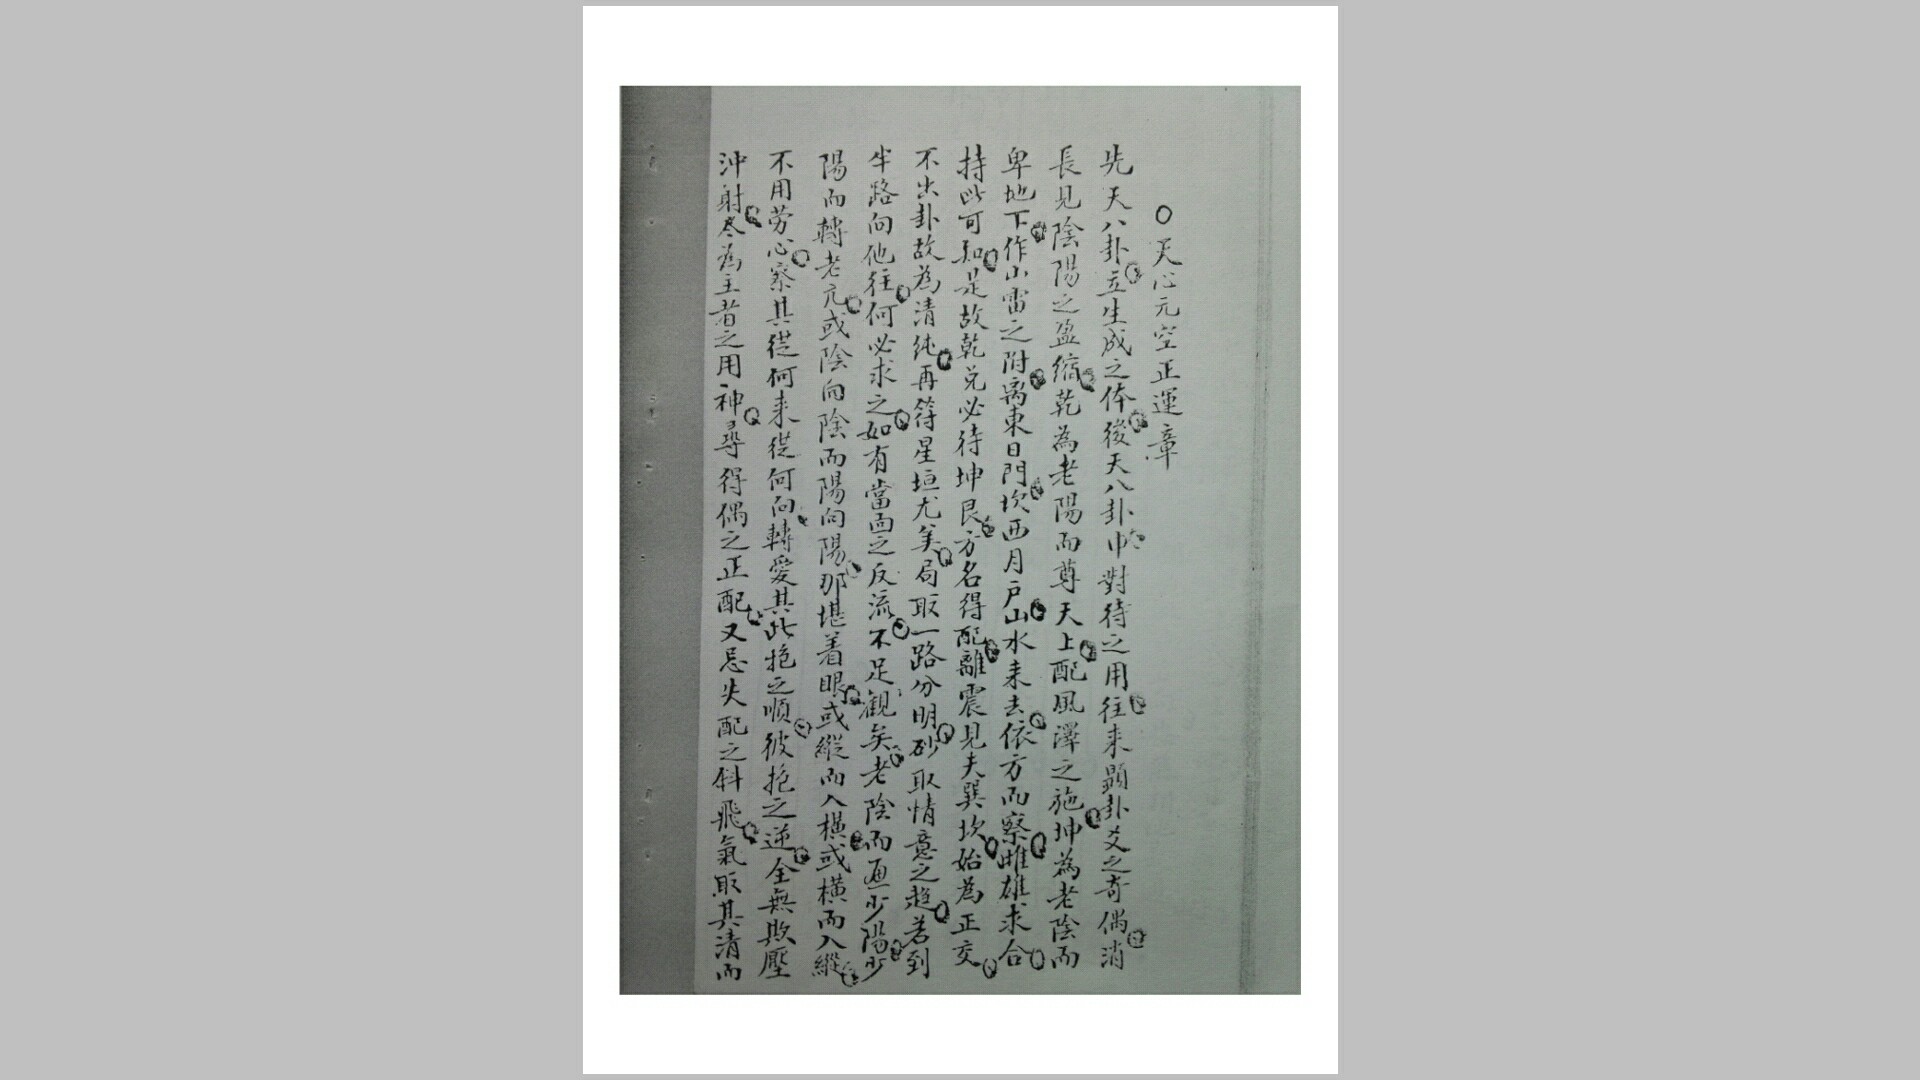 ○天心元空正運章
先天八卦立生成之体後天八卦中對待之用往来顕卦爻之奇偶消
長見陰陽之盈縮乾為老陽而尊天上配風澤之施坤為老陰而
卑地下作山雷之附离東日門坎西月户山水来去依方而察雌雄求合
持此可知是故乾兌必待坤艮方名得配離震見夫巽坎始為正交
不出卦故為清純再符星垣尤美局取一路分明砂取情意之趋若到
半路向他往何必求之如有當面之反流不足觀矣老陰而遇少陽少
陽而轉老亢或陰向陰而陽向陽那堪着眼或縱而入橫或橫而入縱
不用劳心察其從何来從何向轉愛其此抱之順彼抱之逆全無欺壓
沖射尽為主者之用神尋得偶之正配又忌失配之斜飛氣取其清而